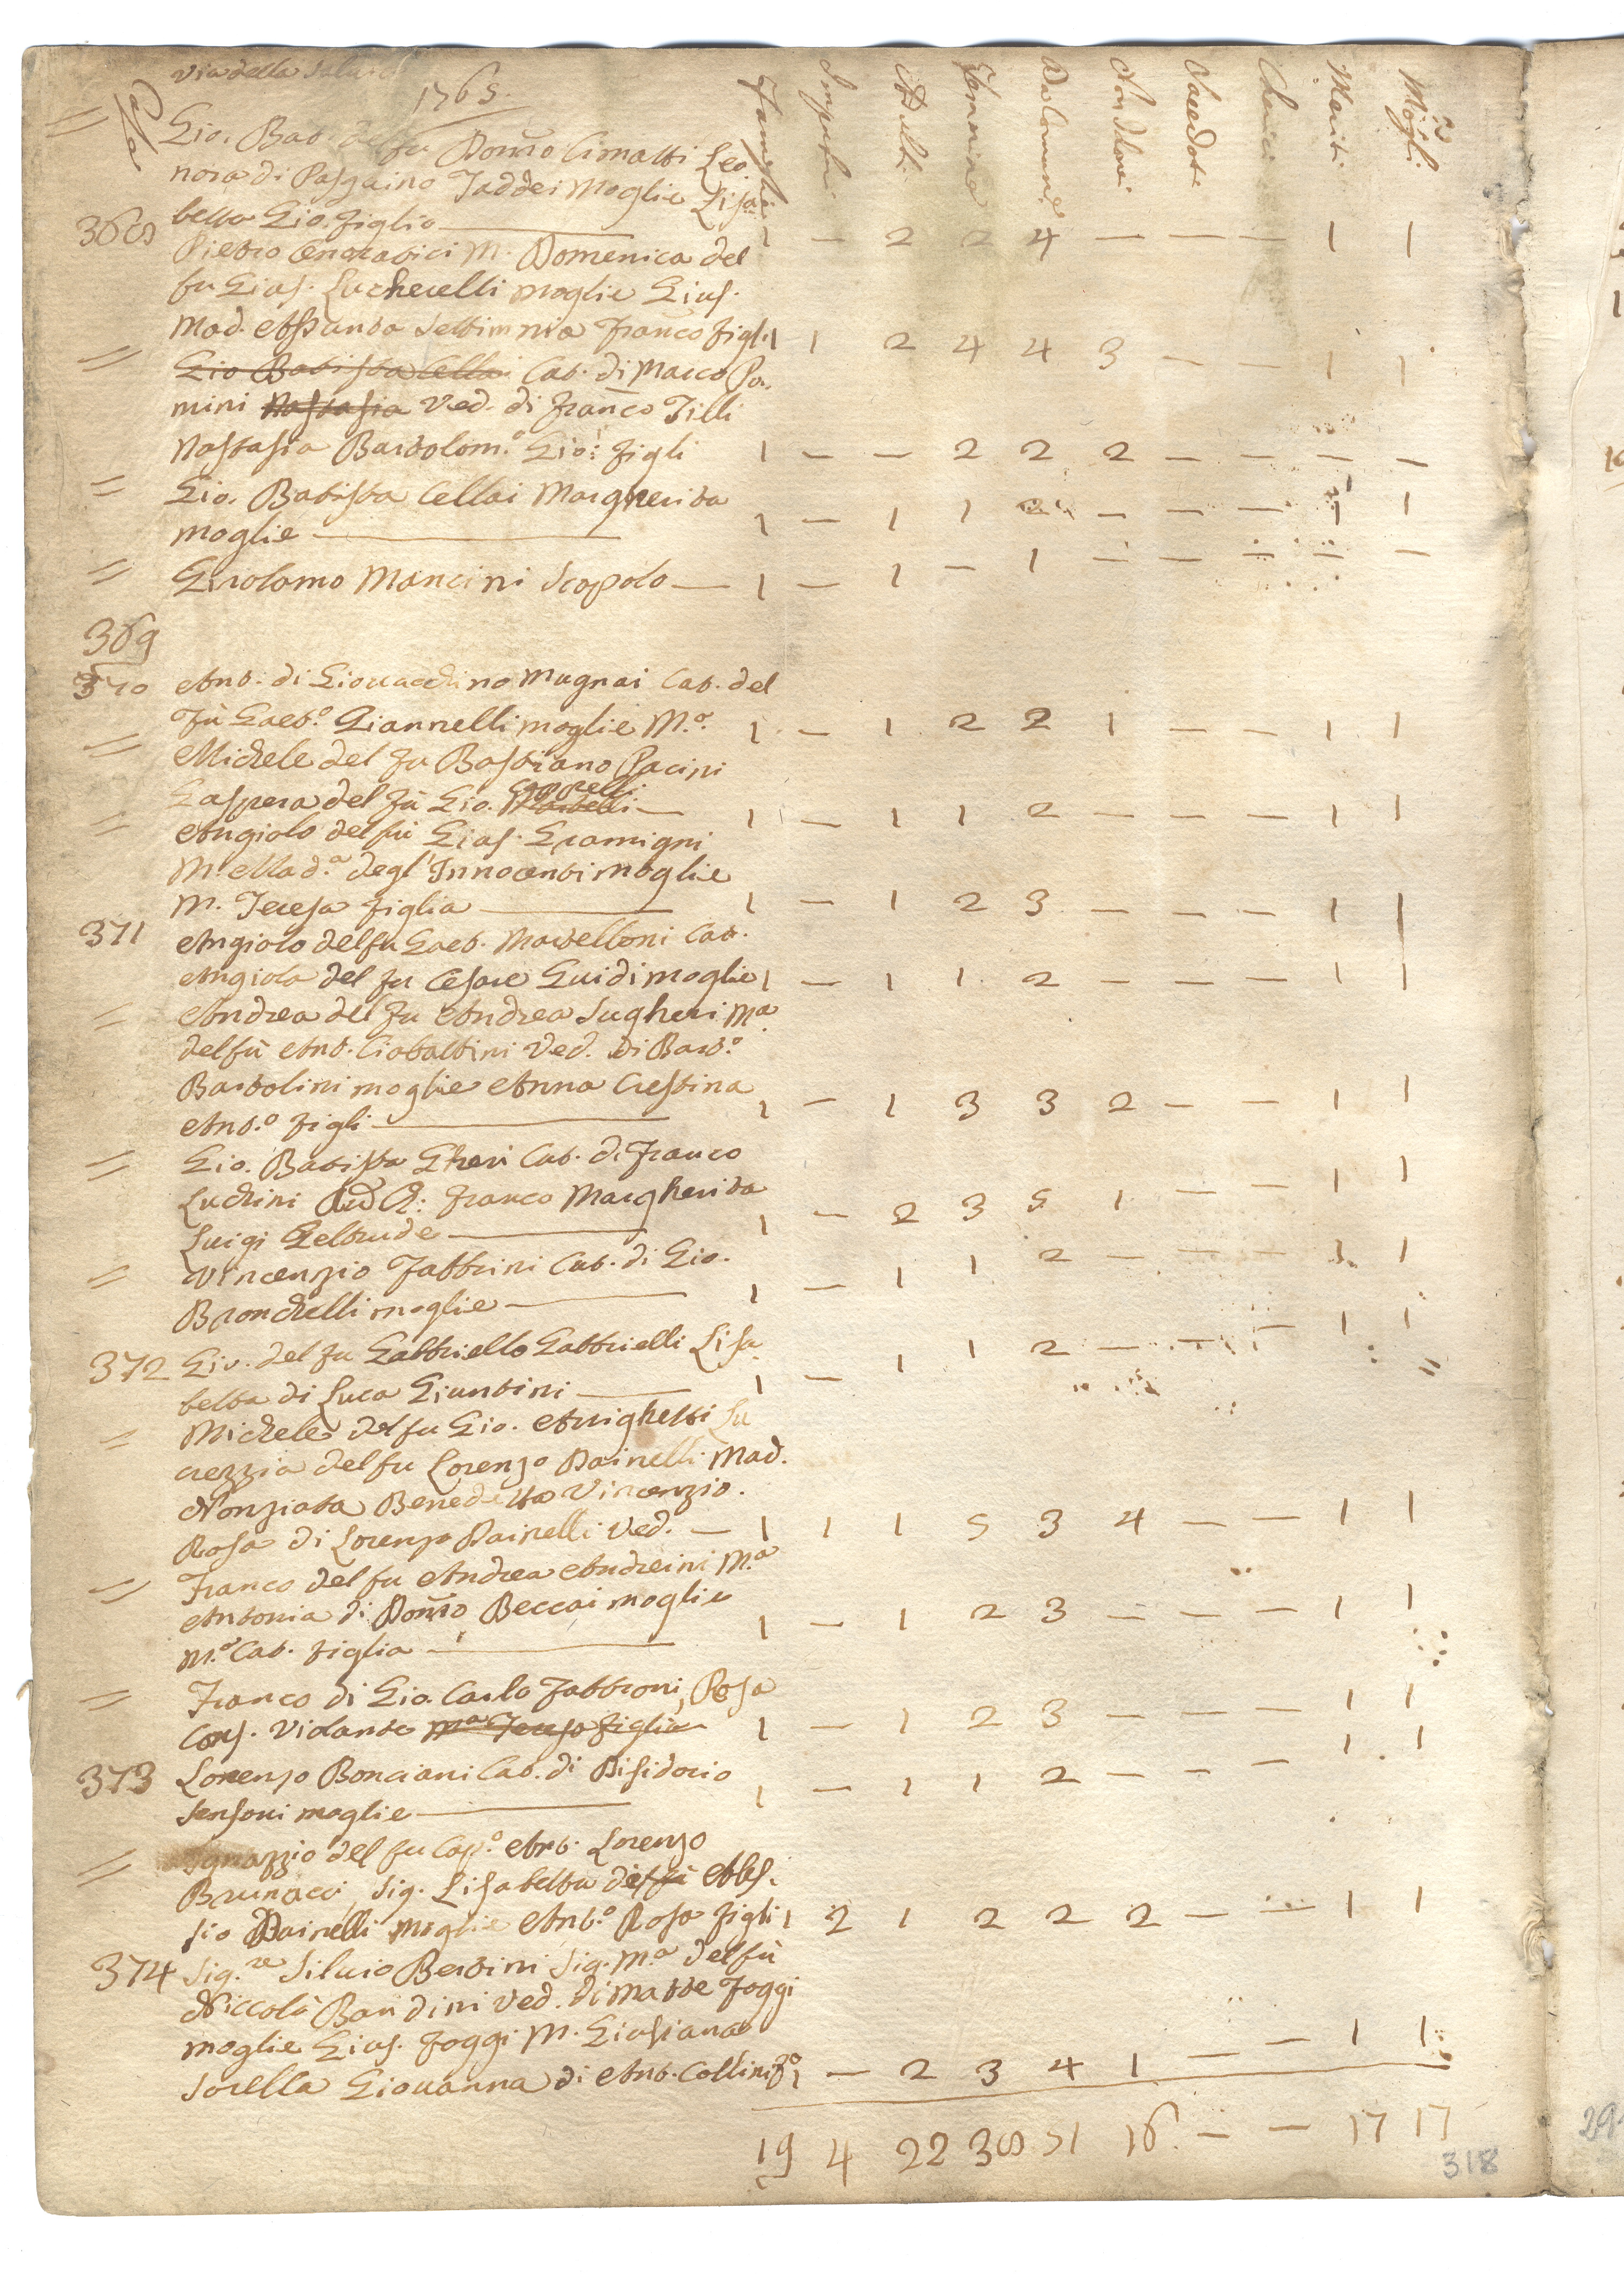 Via della
1765.
Famiglie Impuberi Adulti Femmine Da Comune Non da Co: Sacerdoti Cherici Mariti Mogli
= Gio. Bat. del fu Dom.co Cimatti Leo
nora di Pasquino Taddei Moglie Lisa
368 betta Gio. figlio — 1 — 2 2 4 — — — 1 1
Pietro M. Domenica del
fu Gius. Lucherelli moglie Gius.
Mad. Assunta Settimnia Franco figli 1 1 2 4 4 3 — — 1 1
= Gio Batista Cellai Cat. di Marco Pa
mini Nastasia Ved. di Franco Tilli
Nastasia Bartolom.o Gio: figli 1 — — 2 2 2 — — — —
= Gio. Batista Cellai Margherita
moglie — 1 — 1 1 2 — — — 1 1
= Girolamo Mancini Scopolo — 1 — 1 — 1 — — — — —
369
370 Ant. di Giovacchino Mugnai Cat. del
fù Gaet.o Giannelli moglie M.a 1 — 1 2 2 1 — — 1 1
= Michele del fu Bastiano Pacini
Gaspera del fù Gio. Cappelli — 1 — 1 1 2 — — — 1 1
= Angiolo del fù Gius. Gramigni
M. Mad.a degl'Innocenti moglie
M. Teresa figlia — 1 — 1 2 3 — — — 1 1
371 Angiolo del fu Gaet. Martelloni Cat.
Angiola del fu Cesare Guidi moglie 1 — 1 1 2 — — — 1 1
= Andrea del fu Andrea Sugheri M.a
del fù Ant. Ciabattini Ved. di Bart.o
Bartolini moglie Anna Crestina
Ant.o figli — 1 — 1 3 3 2 — — 1 1
= Gio. Batista Gheri Cat. di Franco
Luchini Franco Margherita
Luigi Geltrude — 1 — 2 3 5 1 — — 1 1
= Vincenzio Fabbrini Cat. di Gio.
Bronchelli moglie — 1 — 1 1 2 — — — 1 1
372 Gio. del fu Gabbriello Gabbrielli Lisa
betta di Luca Giuntini — 1 — 1 1 2 — — — 1 1
= Michele del fu Gio. Arrighetti Lu
crezzia del fu Lorenzo Dainelli Mad.
Nonziata Benedetto Vincenzio.
Rosa di Lorenzo Dainelli Ved. — 1 1 1 5 3 4 — — 1 1
= Franco del fu Andrea Andreini M.a
Antonia di Dom.co Beccai moglie
M.a Cat. figlia — 1 — 1 2 3 — — — 1 1
= Franco di Gio. Carlo Fabbroni, Rosa
Cons. Violante M.a Teresa figlia 1 — 1 2 3 — — — 1 1
373 Lorenzo Bonciani Cat. di Disidorio
Sensoni moglie — 1 — 1 1 2 — — — 1 1
= Ignazzio del fu Cap.o Ant. Lorenzo
Brunacci, Sig. Lisabetta del fù Ales.
sio Dainelli moglie Ant.o Rosa figli 1 2 1 2 2 2 — — 1 1
374 Sig.re Silvio Bertini Sig. M.a del fù
Niccolò Bandini Ved. di Matte Foggi
moglie Gius. Foggi M. Giuliana
Sorella Giovanna di Ant. Collini 1 — 2 3 4 1 — — 1 1
19 4 22 38 51 16 — — 17 17
318